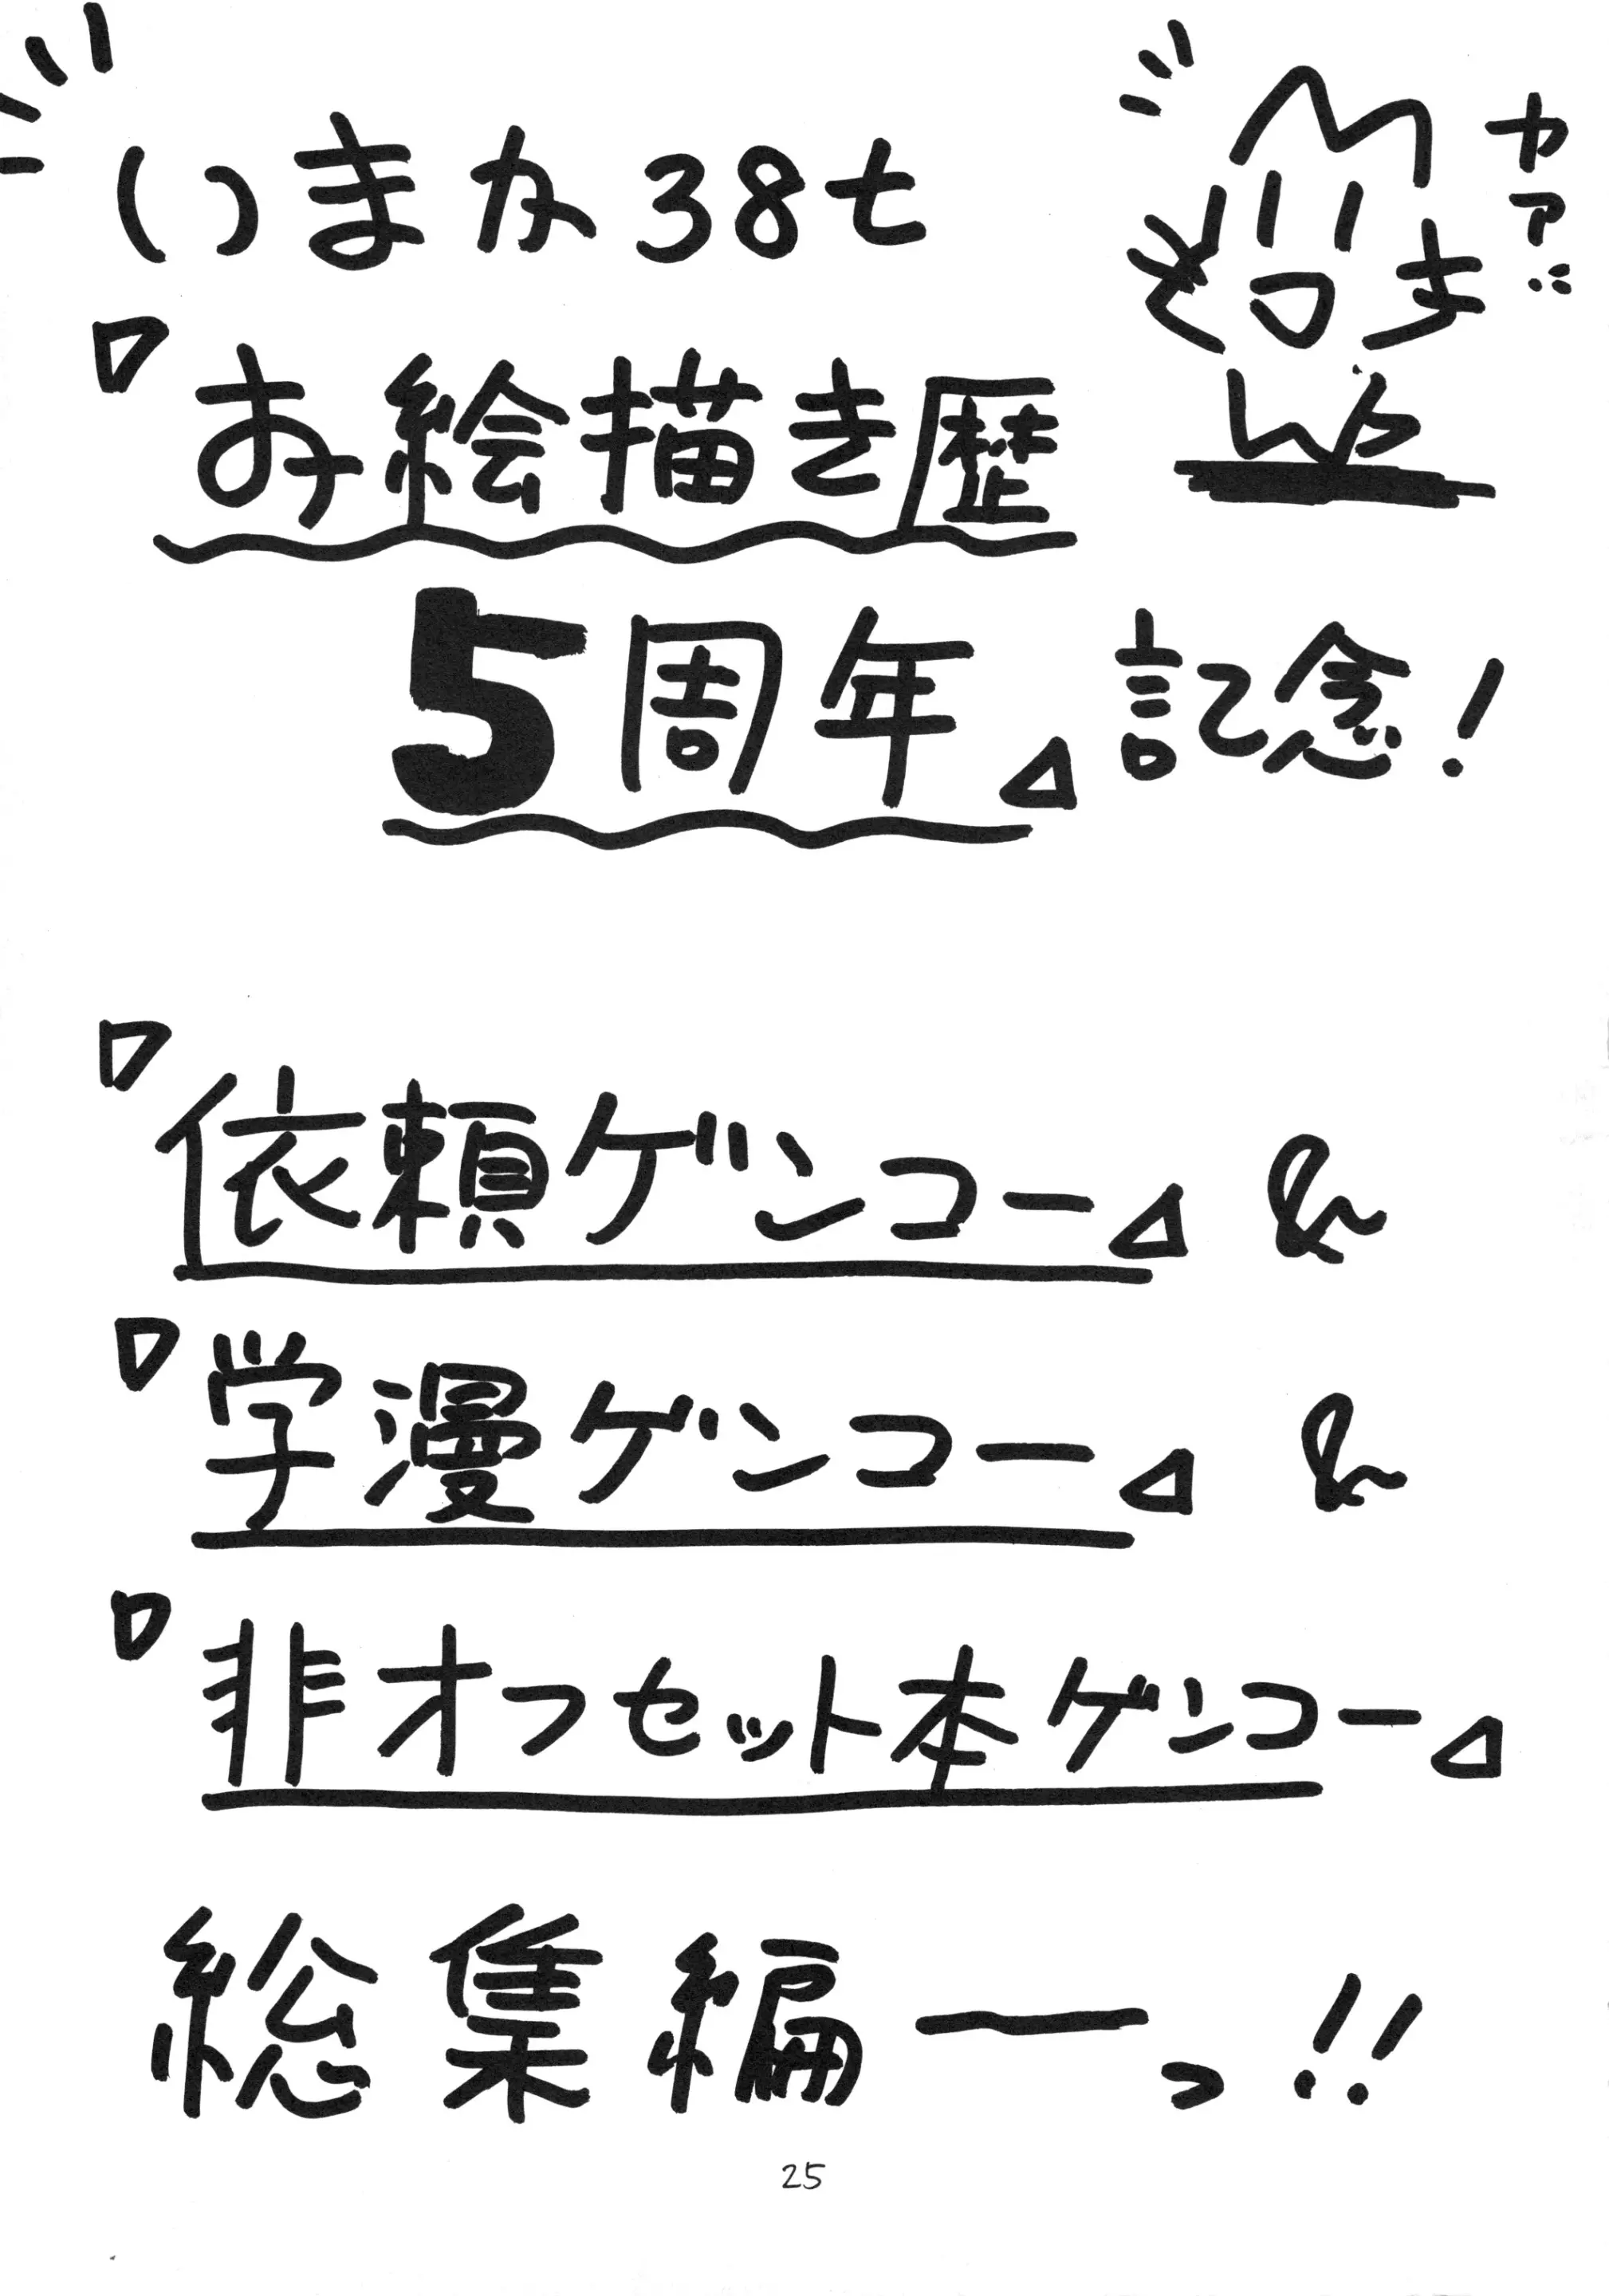 いまか38t
カァ
『お絵描き歴
5周年』記念!
『依頼ゲンコー』&
『学漫ゲンコー』&
『非オフセット本ゲンコー』
総集編ーっ!!
25